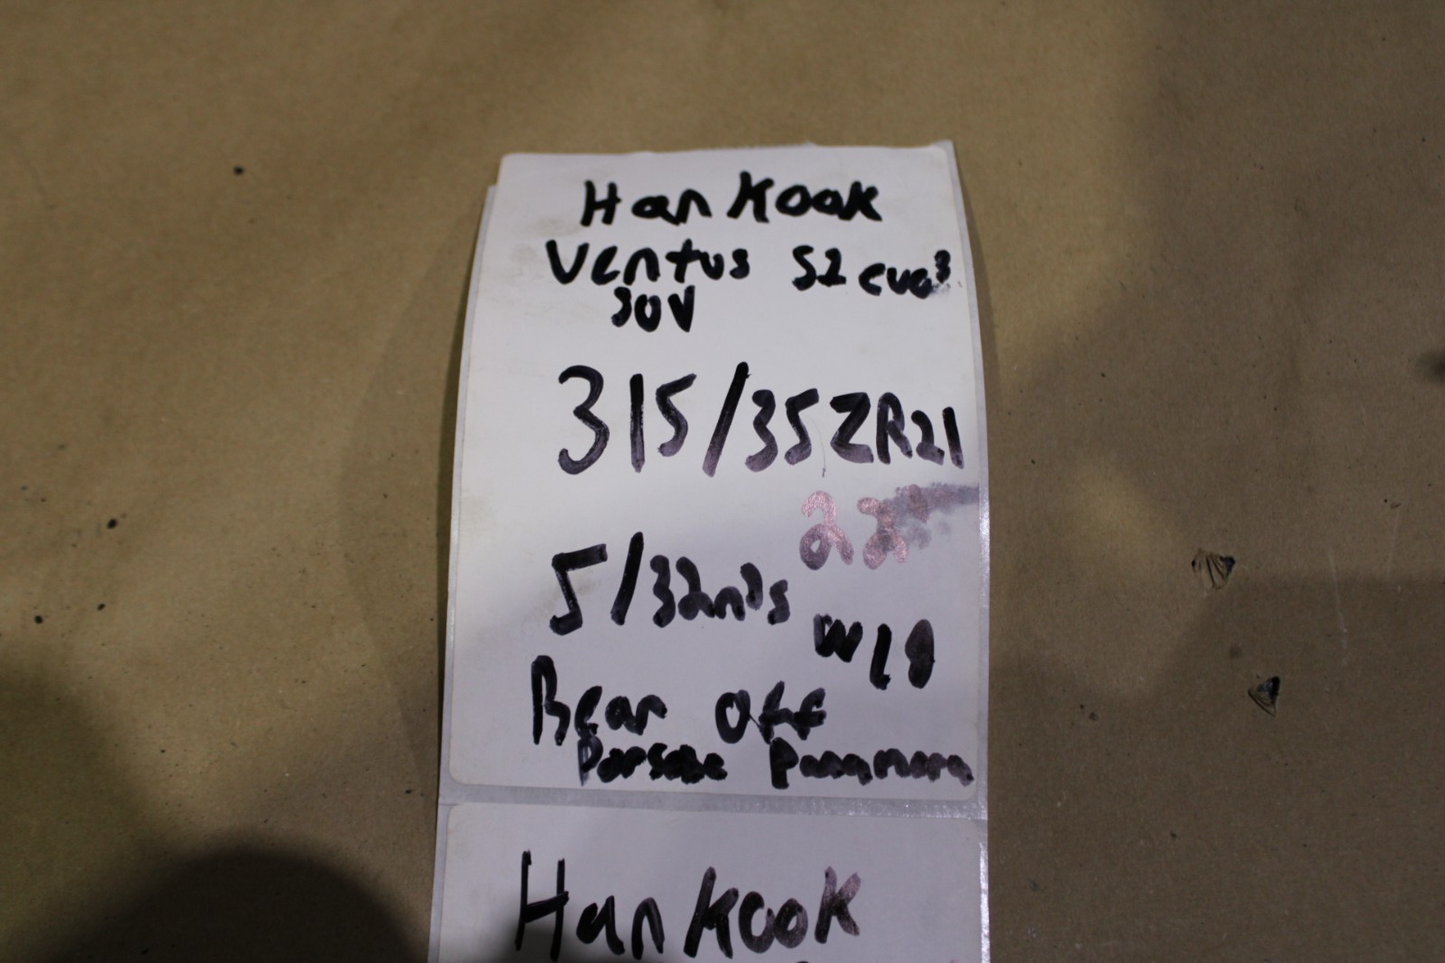 Hankook
Ventus S2 evo3
SUV
315/35ZR21
5/32nds
Rear Off
Porsche Panamera
Hankook